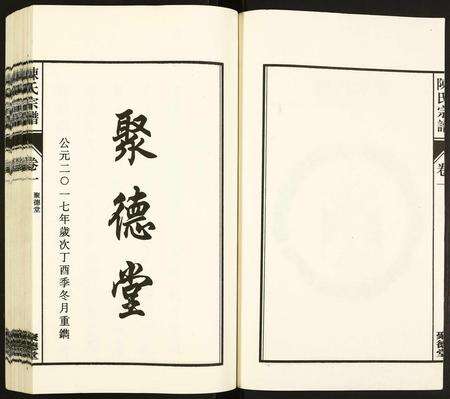 陳氏宗譜
卷一
聚德堂
聚德堂
公元二〇一七年歲次丁酉季冬月重鐫
聚德堂
陳氏宗譜
卷一
聚德堂